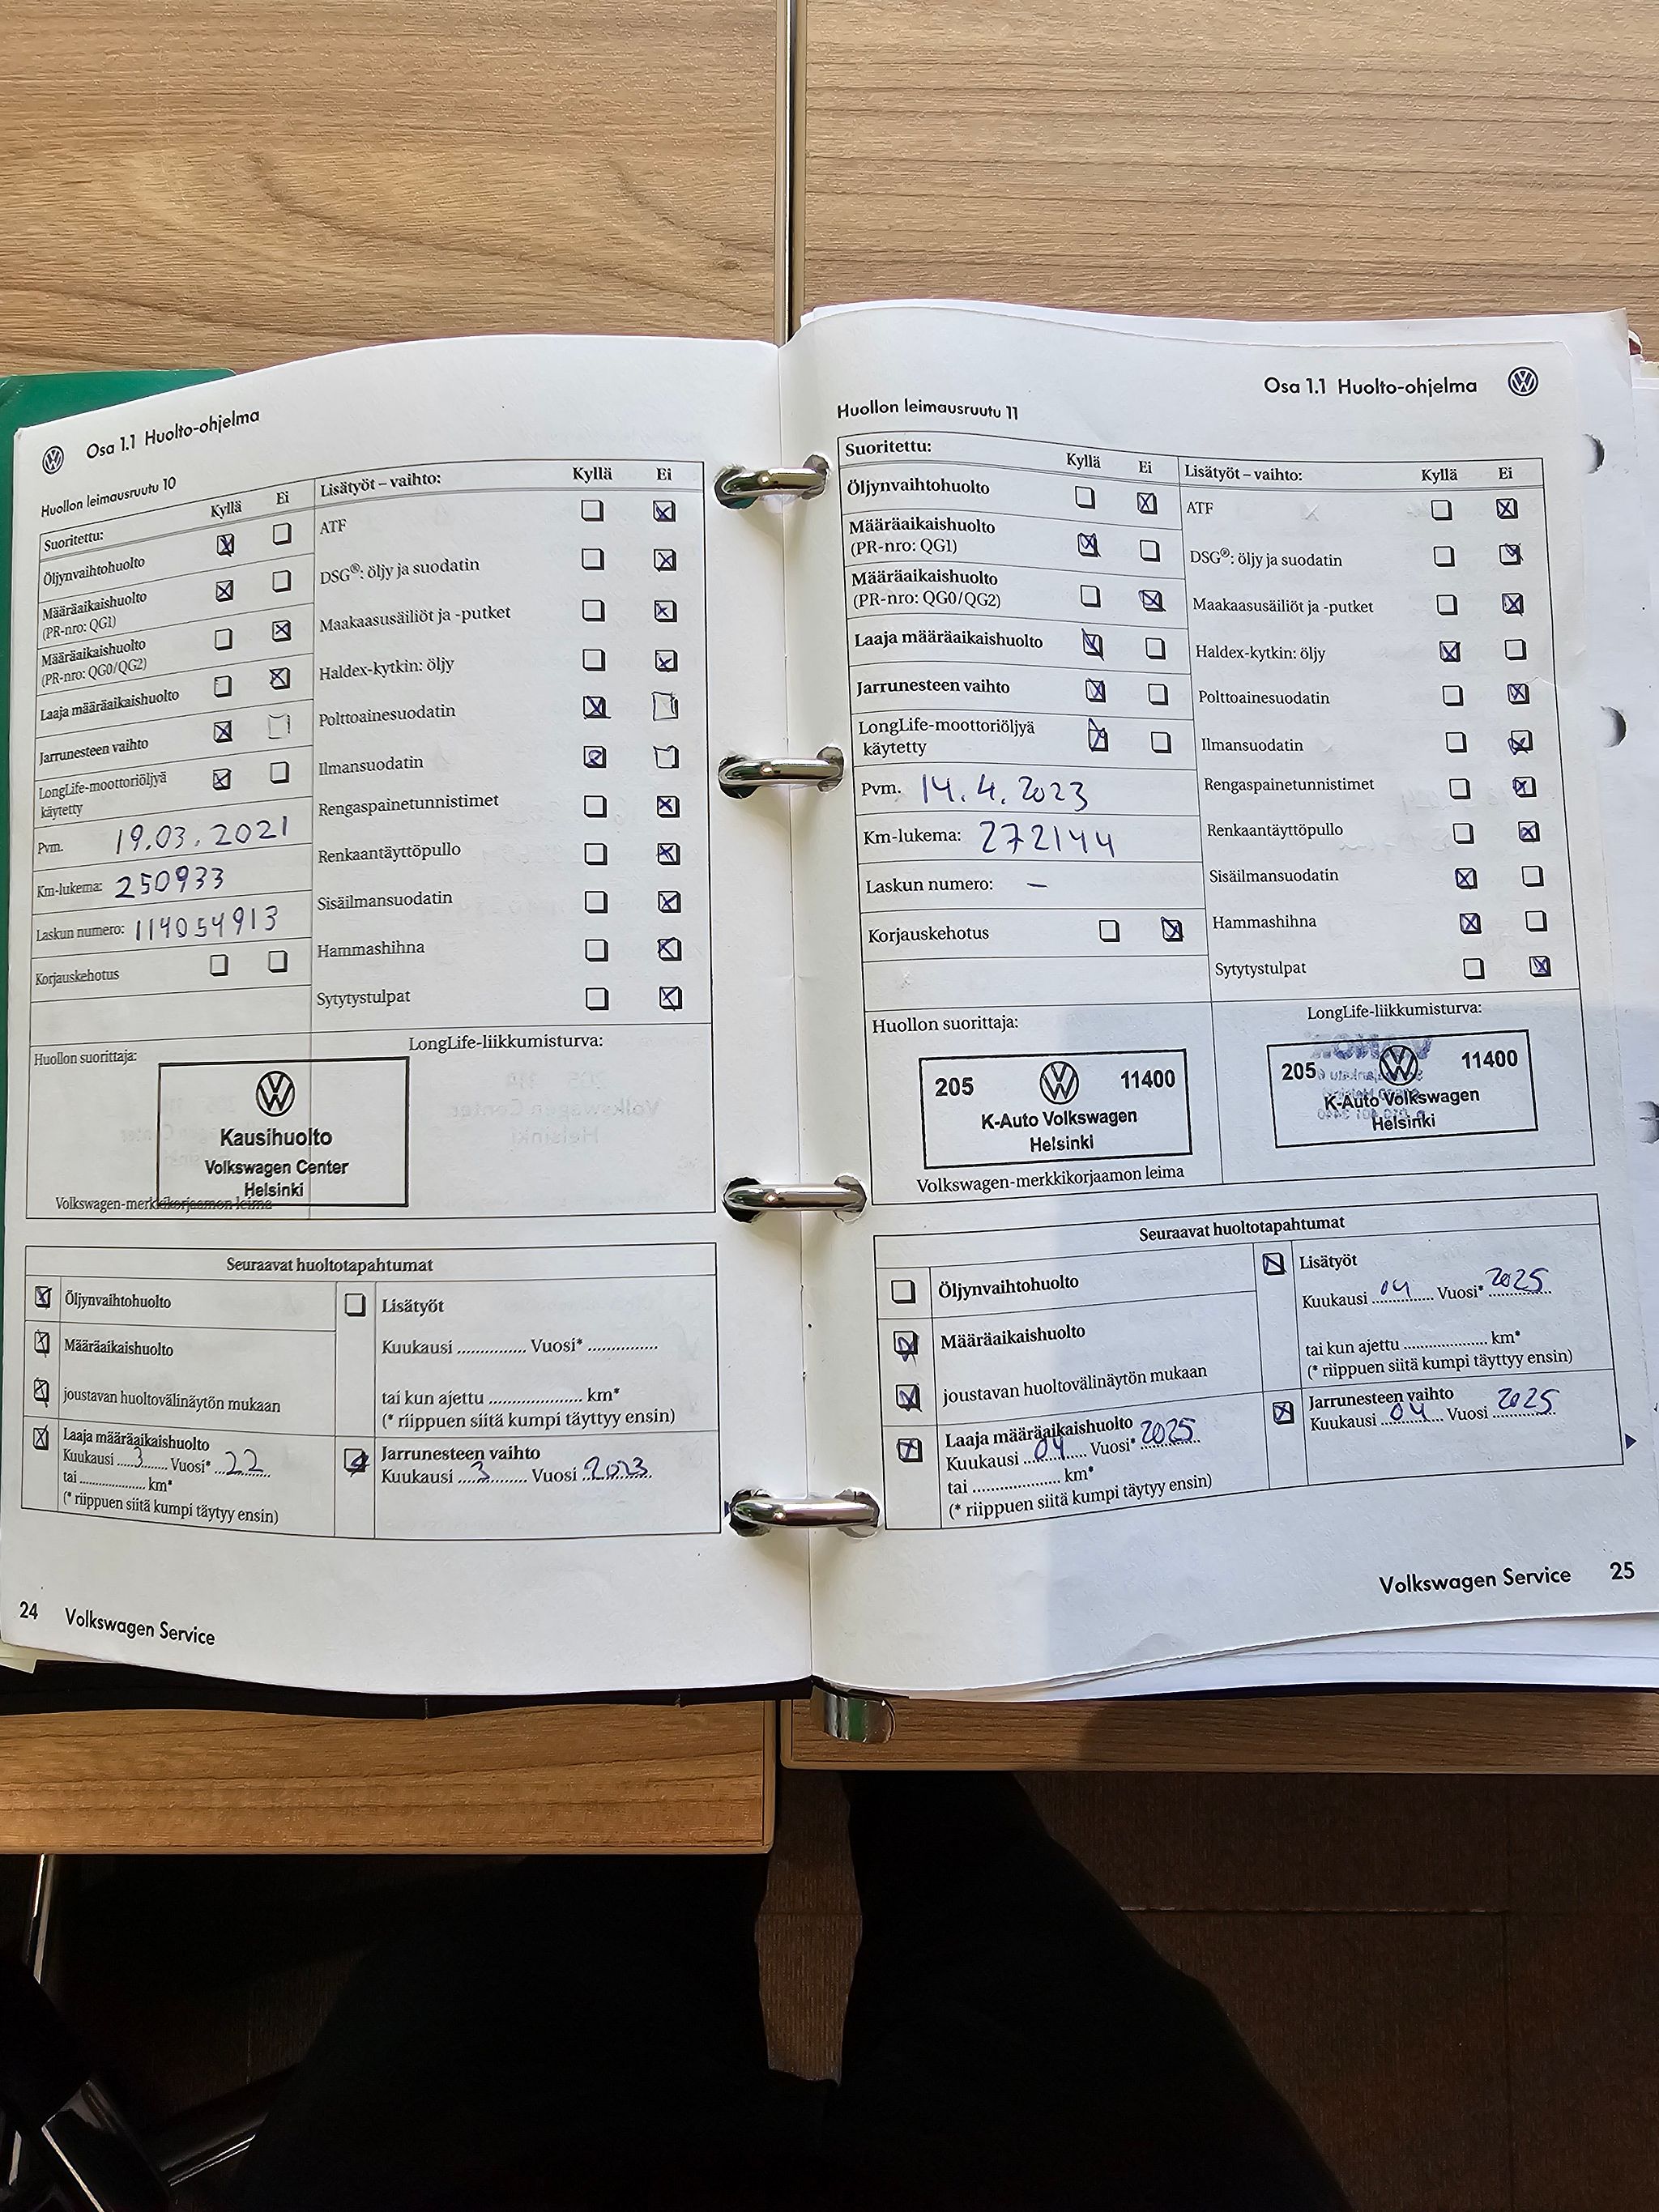 Osa 1.1 Huolto-ohjelma
Huollon leimausruutu 10
Suoritettu: Kyllä Ei
Öljynvaihtohuolto
Määräaikaishuolto
(PR-nro: QG1)
Määräaikaishuolto
(PR-nro: QG0/QG2)
Laaja määräaikaishuolto
Jarrunesteen vaihto
LongLife-moottoriöljyä
käytetty
Pvm. 19.03.2021
Km-lukema: 250933
Laskun numero: 114054913
Korjauskehotus
Lisätyöt – vaihto: Kyllä Ei
ATF
DSG®: öljy ja suodatin
Maakaasusäiliöt ja -putket
Haldex-kytkin: öljy
Polttoainesuodatin
Ilmansuodatin
Rengaspainetunnistimet
Renkaantäyttöpullo
Sisäilmansuodatin
Hammashihna
Sytytystulpat
Huollon suorittaja:
LongLife-liikkumisturva:
Kausihuolto
Volkswagen Center
Helsinki
Volkswagen-merkkikorjaamon leima
Seuraavat huoltotapahtumat
Öljynvaihtohuolto
Määräaikaishuolto
joustavan huoltovälinäytön mukaan
Laaja määräaikaishuolto
Kuukausi 3 Vuosi* 22
tai .................. km*
(* riippuen siitä kumpi täytyy ensin)
Lisätyöt
Kuukausi ............... Vuosi* ...............
tai kun ajettu .................... km*
(* riippuen siitä kumpi täyttyy ensin)
Jarrunesteen vaihto
Kuukausi 3 Vuosi 2023
24 Volkswagen Service
Osa 1.1 Huolto-ohjelma
Huollon leimausruutu 11
Suoritettu: Kyllä Ei
Öljynvaihtohuolto
Määräaikaishuolto
(PR-nro: QG1)
Määräaikaishuolto
(PR-nro: QG0/QG2)
Laaja määräaikaishuolto
Jarrunesteen vaihto
LongLife-moottoriöljyä
käytetty
Pvm. 14.4.2023
Km-lukema: 272144
Laskun numero: –
Korjauskehotus
Lisätyöt – vaihto: Kyllä Ei
ATF
DSG®: öljy ja suodatin
Maakaasusäiliöt ja -putket
Haldex-kytkin: öljy
Polttoainesuodatin
Ilmansuodatin
Rengaspainetunnistimet
Renkaantäyttöpullo
Sisäilmansuodatin
Hammashihna
Sytytystulpat
Huollon suorittaja:
205 11400
K-Auto Volkswagen
Helsinki
Volkswagen-merkkikorjaamon leima
LongLife-liikkumisturva:
205 11400
K-Auto Volkswagen
Helsinki
Seuraavat huoltotapahtumat
Öljynvaihtohuolto
Määräaikaishuolto
joustavan huoltovälinäytön mukaan
Laaja määräaikaishuolto
Kuukausi 04 Vuosi* 2025
tai .................. km*
(* riippuen siitä kumpi täytyy ensin)
Lisätyöt
Kuukausi 04 Vuosi* 2025
tai kun ajettu .................. km*
(* riippuen siitä kumpi täyttyy ensin)
Jarrunesteen vaihto
Kuukausi 04 Vuosi 2025
Volkswagen Service 25